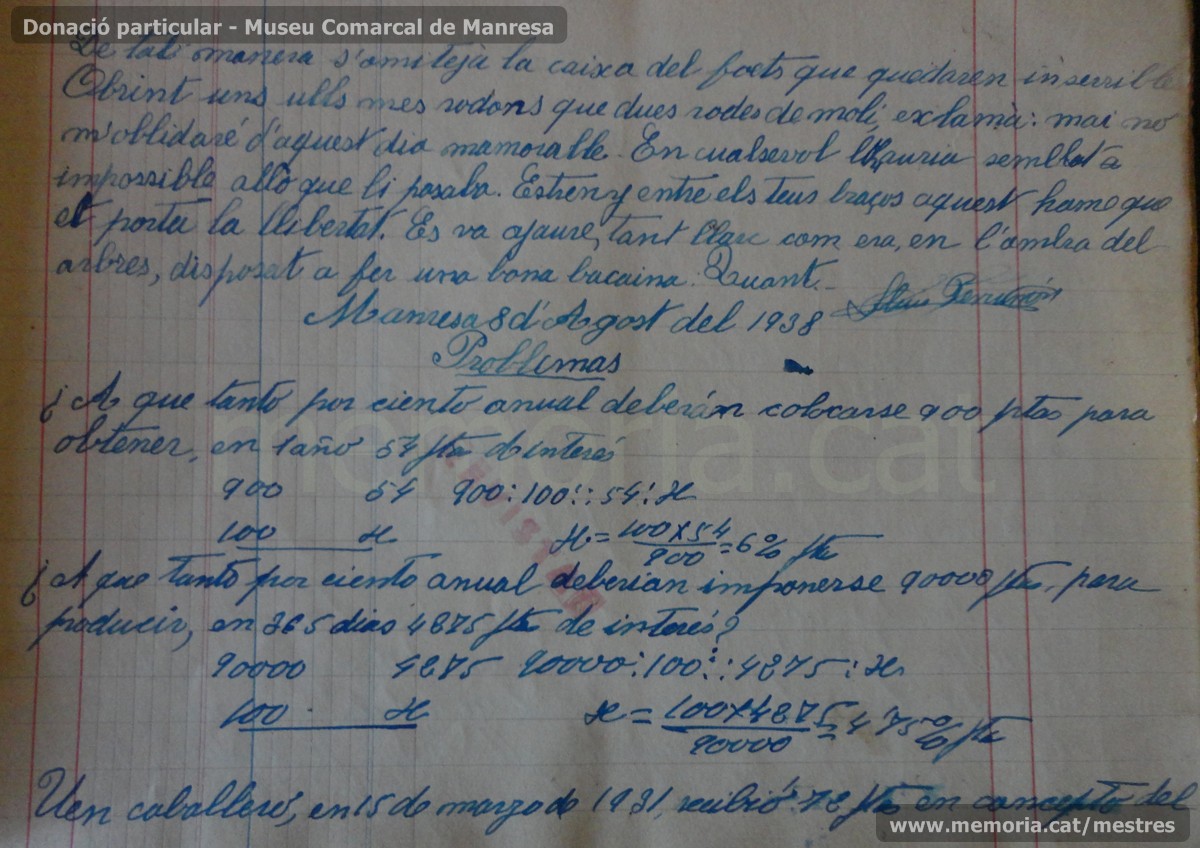 Donació particular - Museu Comarcal de Manresa
De tal manera s'omitejà la caixa del foets que quedaren inservible
Obrint uns ulls mes rodons que dues rodes de molí, exclamà: mai no
m'oblidaré d'aquest dia mamoralle. En cualsevol lli auria semblat a
impossible allò que li pasaba. Estreny entre els teus braços aquest home que
et porta la llibertat. Es va ajaure, tant llarc com era, en l'ombra del
arbres, disposat a fer una bona bacaina. Quant.-
Manresa 8 d'Agost del 1938
Problemas
¿A que tanto por ciento anual deberán colocarse 900 ptas para
obtener, en 1 año 54 pta de interés
900 54 900:100::54:x
100 x x = 100x54 / 900 = 6% pta
¿A que tanto por ciento anual deberian imponerse 90000 pta, para
producir, en 365 dias 4275 pta de interés?
90000 4275 90000:100::4275:x
100 x x = 100x4275 / 90000 = 4'75% pta
Uen caballero, en 15 de marzo de 1931, recibió 78 pta en concepto del
memoria.cat
www.memoria.cat/mestres